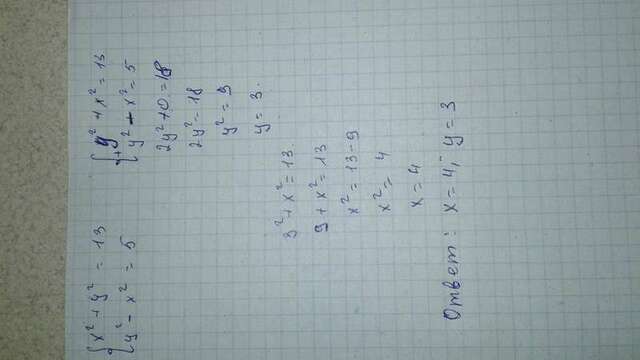 x² + y² = 13
y² - x² = 5
y² + x² = 13
+ y² - x² = 5
2y² + 0 = 18
2y² = 18
y² = 9
y = 3.
3² + x² = 13.
9 + x² = 13
x² = 13 - 9
x² = 4
x = 4
Ответ: x = 4; y = 3